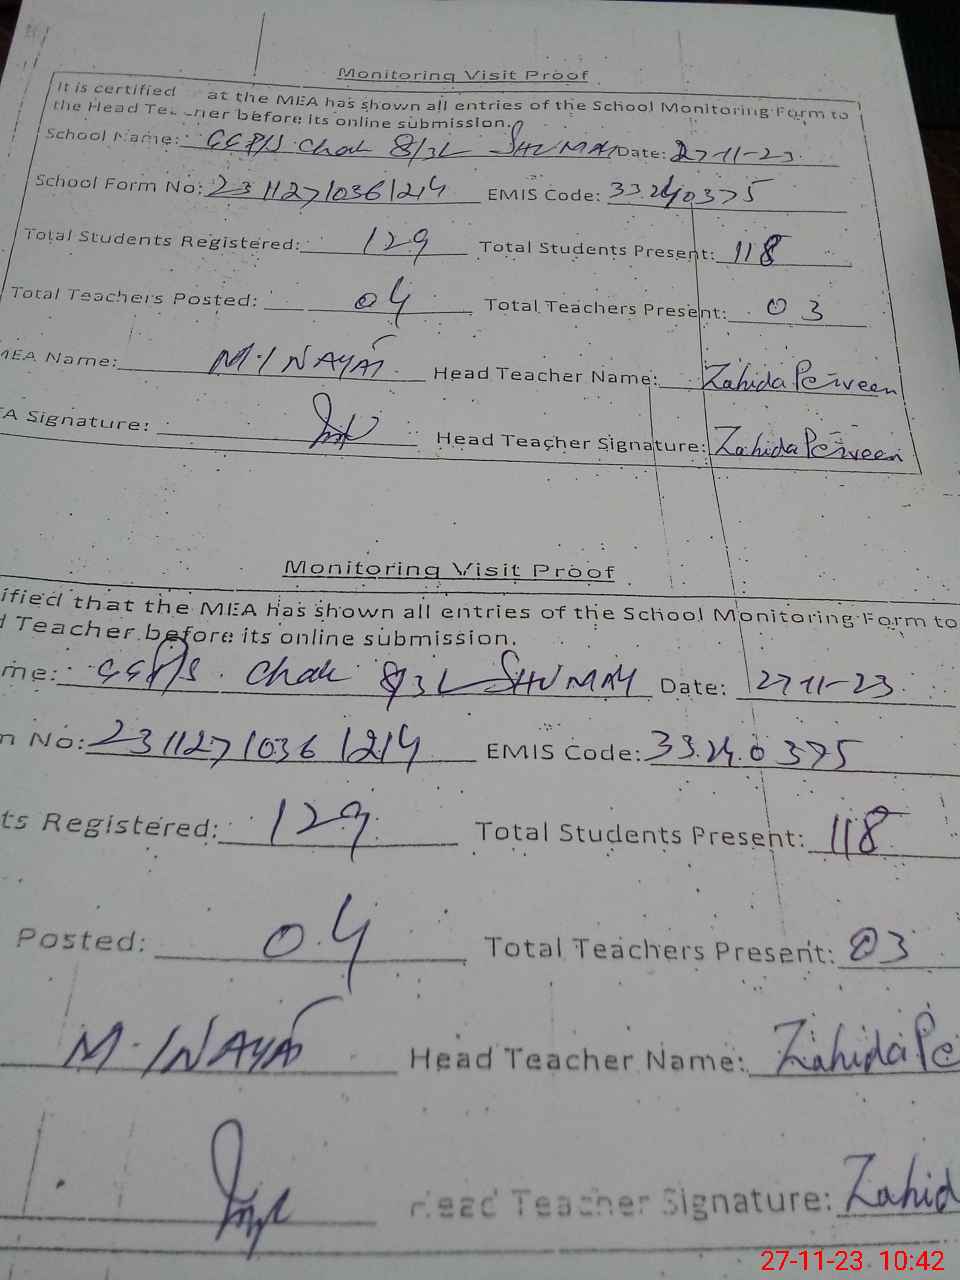 Monitoring Visit Proof
It is certified at the MEA has shown all entries of the School Monitoring Form to
the Head Te ner before its online submission.
School Name: GGP/S Chak 8/3L SHUMALI Date: 27-11-23
School Form No: 23112710361214 EMIS Code: 33240375
Total Students Registered: 129 Total Students Present: 118
Total Teachers Posted: 04 Total Teachers Present: 03
MEA Name: M. INAYAT Head Teacher Name: Zahida Perveen
EA Signature: Head Teacher Signature: Zahida Perveen
Monitoring Visit Proof
ified that the MEA has shown all entries of the School Monitoring Form to
d Teacher before its online submission.
me: GGP/S. Chak 8/3L SHUMALI Date: 27-11-23
n No: 23112710361214 EMIS Code: 33240375
ts Registered: 129 Total Students Present: 118
Posted: 04 Total Teachers Present: 03
M. INAYAT Head Teacher Name: Zahida Pe
Head Teacher Signature: Zahid
27-11-23 10:42